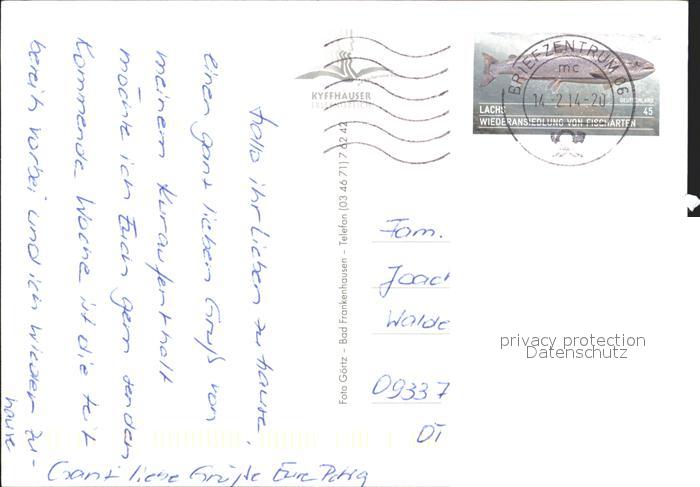 Hallo ihr lieben zu hause,
einen ganz lieben Gruß von
meinem Kuraufenthalt
möchte ich Euch gern senden
Kommende Woche ist die Zeit
bereits vorbei und ich wieder zu-
hause
Ganz liebe Grüße Eure Petra
KYFFHÄUSER
Foto Görtz – Bad Frankenhausen – Telefon (03 46 71) 7 62 42
BRIEFZENTRUM 06
mc
14.-2.14-20
DEUTSCHLAND
LACHS 45
WIEDERANSIEDLUNG VON FISCHARTEN
Fam.
Joac
Walde
09337
OT
privacy protection
Datenschutz